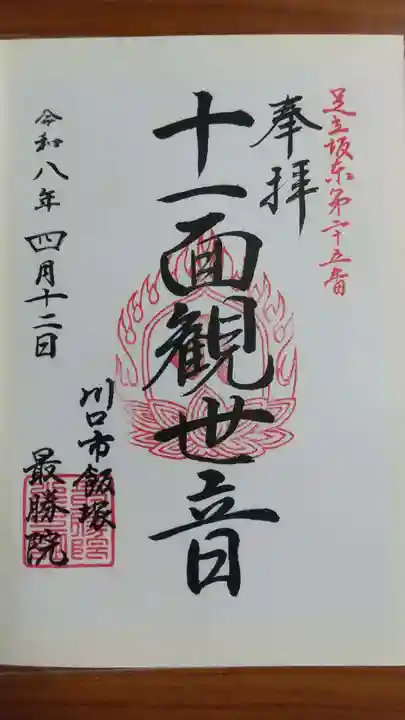 足立坂東第二十五番
奉拝
十一面観世音
川口市飯塚
最勝院
令和八年四月十二日